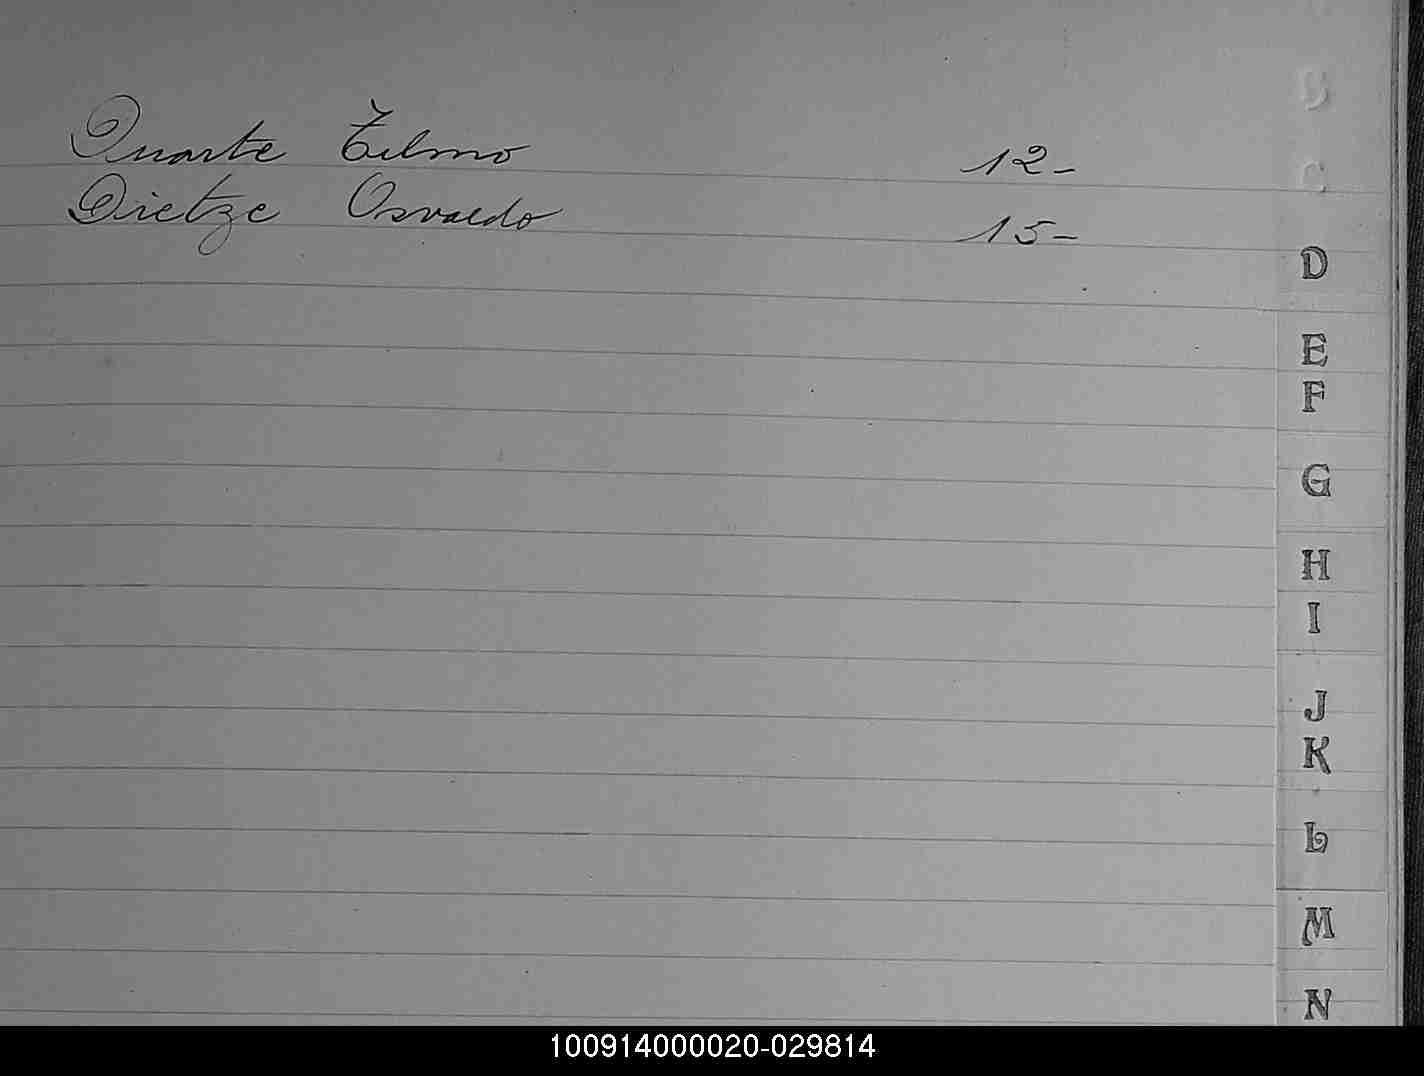 Duarte Telmo 12-
Dietze Osvaldo 15-
D
E
F
G
H
I
J
K
L
M
N
100914000020-029814